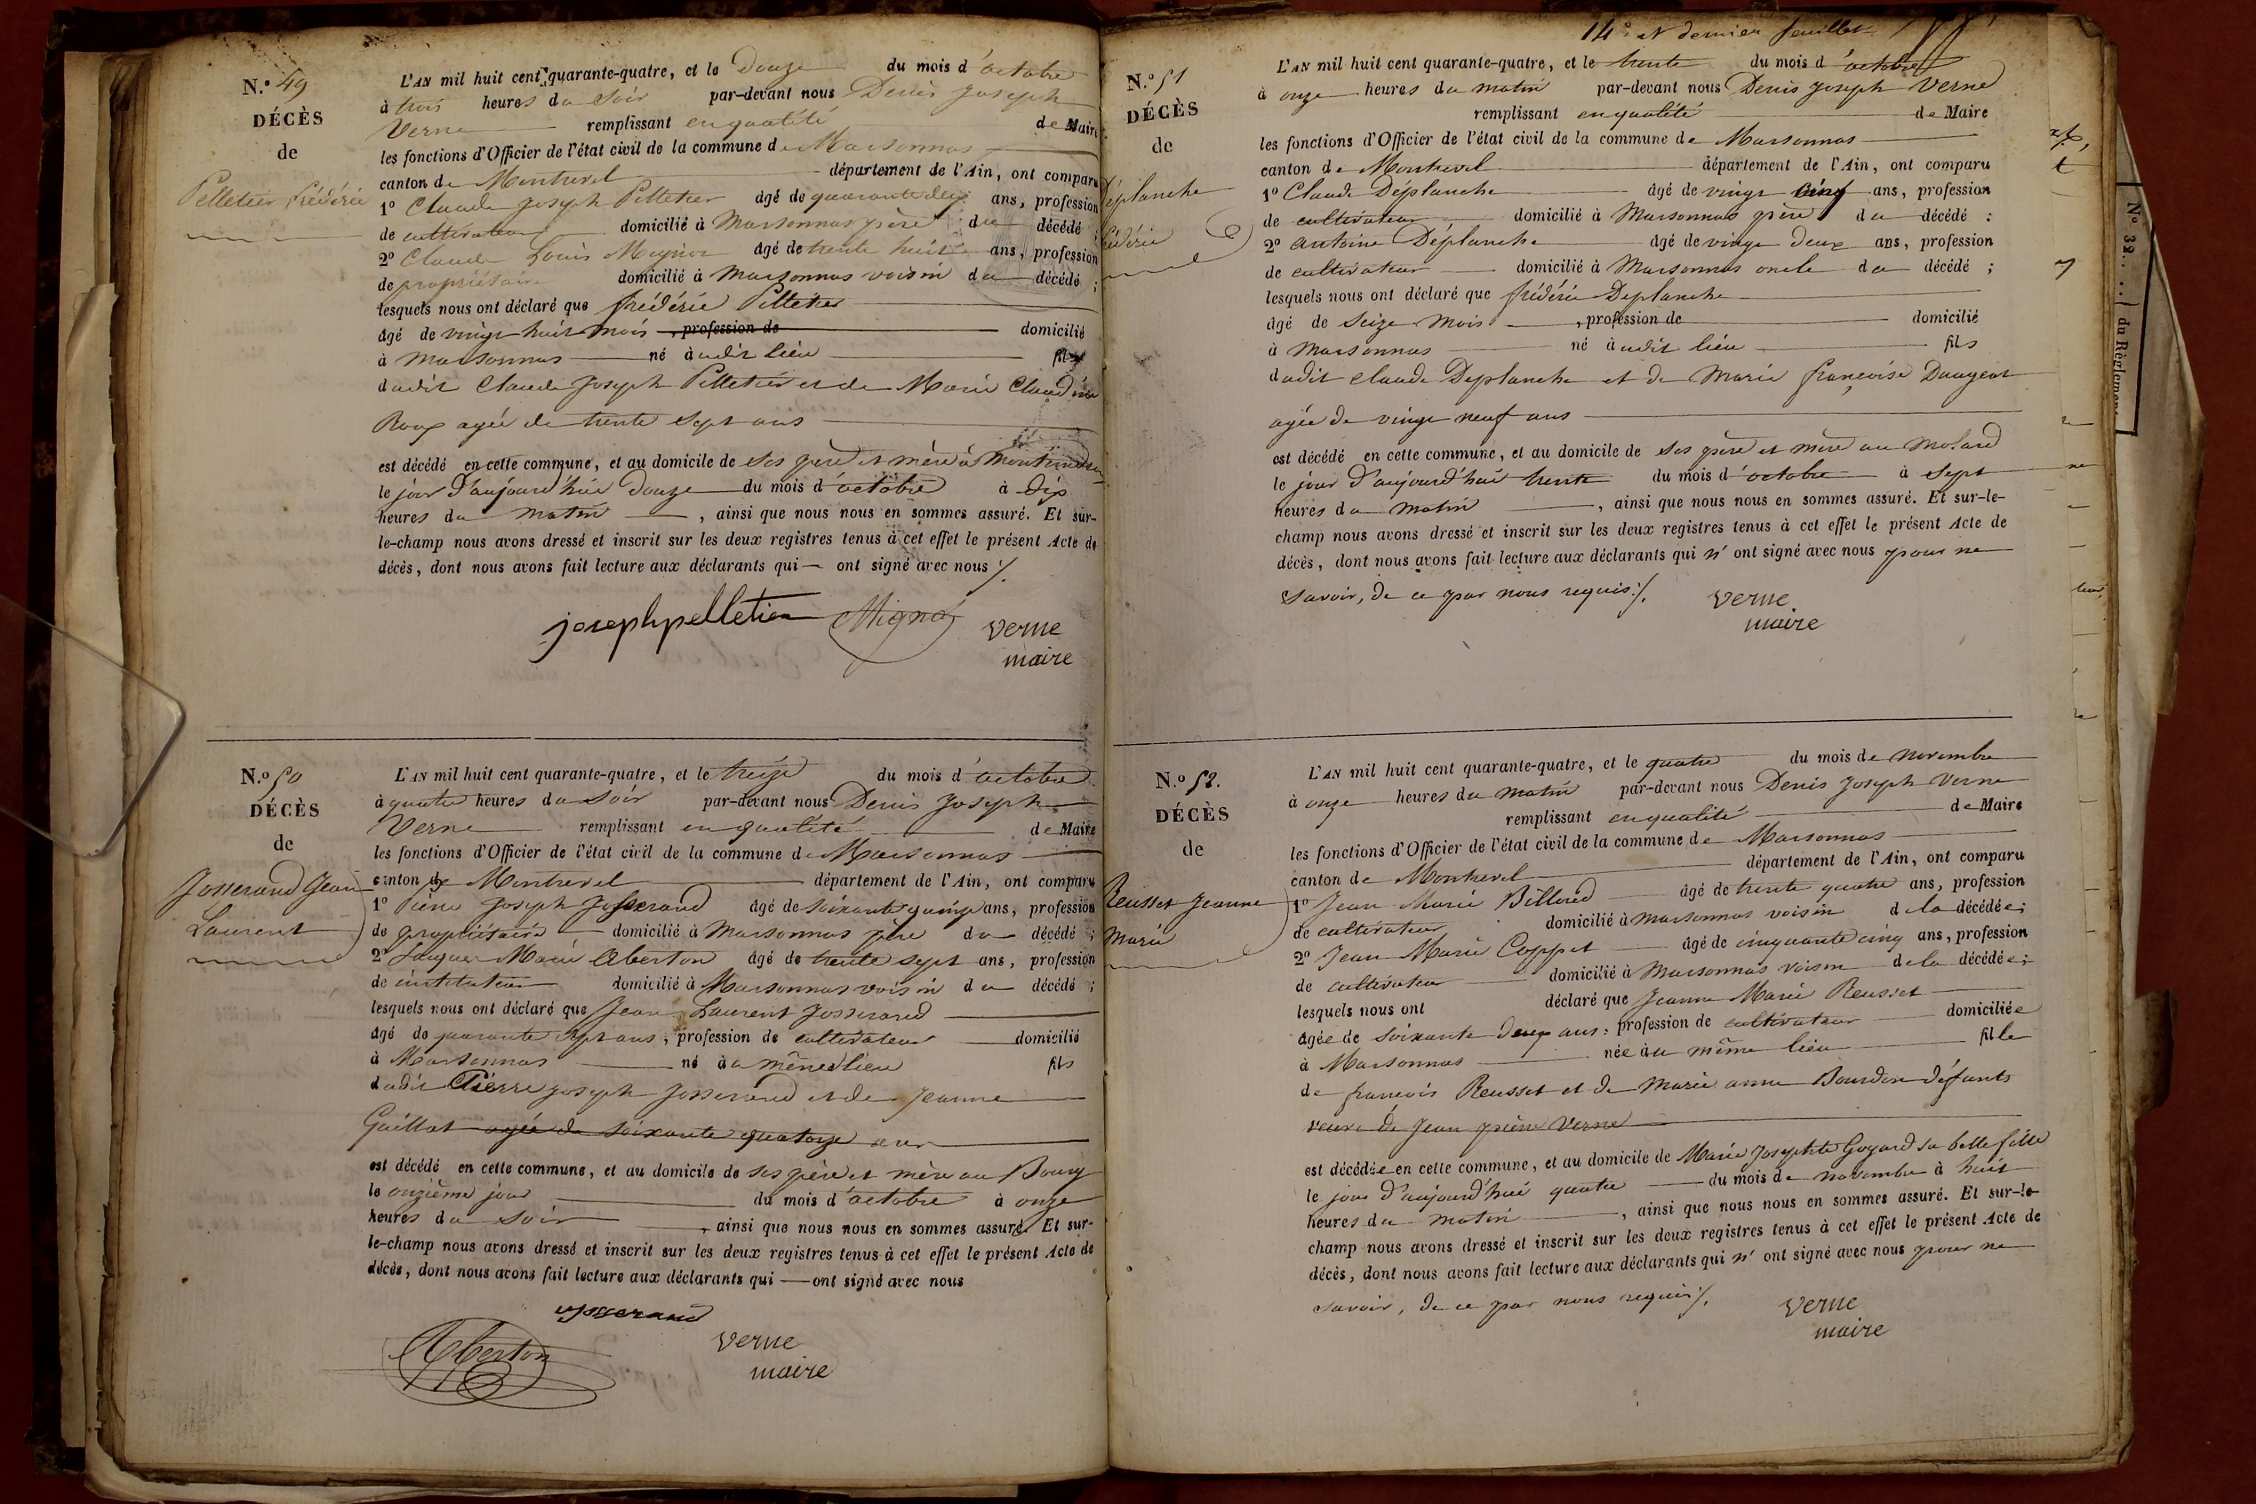 N.o 49
DÉCÈS
de
Pelletier frédéric
L'AN mil huit cent quarante-quatre, et le Douze du mois d'octobre
à trois heures du Soir par-devant nous Denis Joseph
Verne remplissant en qualité de Maire
les fonctions d'Officier de l'état civil de la commune de Marsonnas
canton de Montrevel département de l'Ain, ont comparu
1o Claude Joseph Pelletier âgé de quarante deux ans, profession
de cultivateur domicilié à Marsonnas père du décédé ;
2o Claude Louis Mignot âgé de trente huit ans, profession
de propriétaire domicilié à Marsonnas voisin du décédé ;
lesquels nous ont déclaré que frédéric Pelletier
âgé de vingt huit mois, profession de domicilié
à Marsonnas né audit lieu fils
dudit Claude Joseph Pelletier et de Marie Claudine
Roux agée de trente sept ans
est décédé en cette commune, et au domicile de ses père et mère à
le jour d'aujourd'hui Douze du mois d'octobre à dix
heures du matin, ainsi que nous nous en sommes assuré. Et sur-
le-champ nous avons dressé et inscrit sur les deux registres tenus à cet effet le présent Acte de
décès, dont nous avons fait lecture aux déclarants qui — ont signé avec nous ./.
joseph pelletier Mignot Verne
maire
N.o 50
DÉCÈS
de
Josserand Jean
Laurent
L'AN mil huit cent quarante-quatre, et le treize du mois d'octobre
à quatre heures du Soir par-devant nous Denis Joseph
Verne remplissant en qualité de Maire
les fonctions d'Officier de l'état civil de la commune de Marsonnas
canton de Montrevel département de l'Ain, ont comparu
1o Pierre Joseph Josserand âgé de soixante quinze ans, profession
de propriétaire domicilié à Marsonnas père du décédé ;
2o Jacques Marie Aberton âgé de trente sept ans, profession
de instituteur domicilié à Marsonnas voisin du décédé ;
lesquels nous ont déclaré que Jean Laurent Josserand
âgé de quarante sept ans, profession de cultivateur domicilié
à Marsonnas né au même lieu fils
dudit Pierre joseph Josserand et de Jeanne
Guillot agée de soixante quatorze ans
est décédé en cette commune, et au domicile de ses père et mère au Bourg
le onzième jour du mois d'octobre à onze
heures du Soir, ainsi que nous nous en sommes assuré. Et sur-
le-champ nous avons dressé et inscrit sur les deux registres tenus à cet effet le présent Acte de
décès, dont nous avons fait lecture aux déclarants qui — ont signé avec nous
Josserand
Aberton Verne
maire
14e et dernier feuillet
N.o 51
DÉCÈS
de
Déplanche
frédéric
L'AN mil huit cent quarante-quatre, et le trente du mois d'octobre
à onze heures du matin par-devant nous Denis Joseph Verne
remplissant en qualité de Maire
les fonctions d'Officier de l'état civil de la commune de Marsonnas
canton de Montrevel département de l'Ain, ont comparu
1o Claude Déplanche âgé de vingt cinq ans, profession
de cultivateur domicilié à Marsonnas père du décédé ;
2o antoine Déplanche âgé de vingt deux ans, profession
de cultivateur domicilié à Marsonnas oncle du décédé ;
lesquels nous ont déclaré que frédéric Déplanche
âgé de Seize mois, profession de domicilié
à Marsonnas né audit lieu fils
dudit Claude Deplanche et de Marie françoise Daugeat
agée de vingt neuf ans
est décédé en cette commune, et au domicile de ses père et mère au molard
le jour d'aujourd'hui trente du mois d'octobre à sept
heures du matin, ainsi que nous nous en sommes assuré. Et sur-le-
champ nous avons dressé et inscrit sur les deux registres tenus à cet effet le présent Acte de
décès, dont nous avons fait lecture aux déclarants qui n'ont signé avec nous pour ne
Savoir, de ce par nous requis ./. Verne
maire
N.o 52.
DÉCÈS
de
Reusset Jeanne
Marie
L'AN mil huit cent quarante-quatre, et le quatre du mois de novembre
à onze heures du matin par-devant nous Denis Joseph Verne
remplissant en qualité de Maire
les fonctions d'Officier de l'état civil de la commune de Marsonnas
canton de Montrevel département de l'Ain, ont comparu
1o Jean Marie Billoud âgé de trente quatre ans, profession
de cultivateur domicilié à Marsonnas voisin de la décédée ;
2o Jean Marie Coppet âgé de cinquante cinq ans, profession
de cultivateur domicilié à Marsonnas voisin de la décédée ;
lesquels nous ont déclaré que Jeanne Marie Reusset
agée de soixante deux ans, profession de cultivateur domiciliée
à Marsonnas née au même lieu fille
de françois Reusset et de Marie anne Bourdon défunts
veuve de Jean pierre Verne
est décédée en cette commune, et au domicile de Marie Josephte Goyard sa belle fille
le jour d'aujourd'hui quatre du mois de novembre à huit
heures du matin, ainsi que nous nous en sommes assuré. Et sur-le-
champ nous avons dressé et inscrit sur les deux registres tenus à cet effet le présent Acte de
décès, dont nous avons fait lecture aux déclarants qui n'ont signé avec nous pour ne
savoir, de ce par nous requis ./. Verne
maire
N.o 32
du Règlement